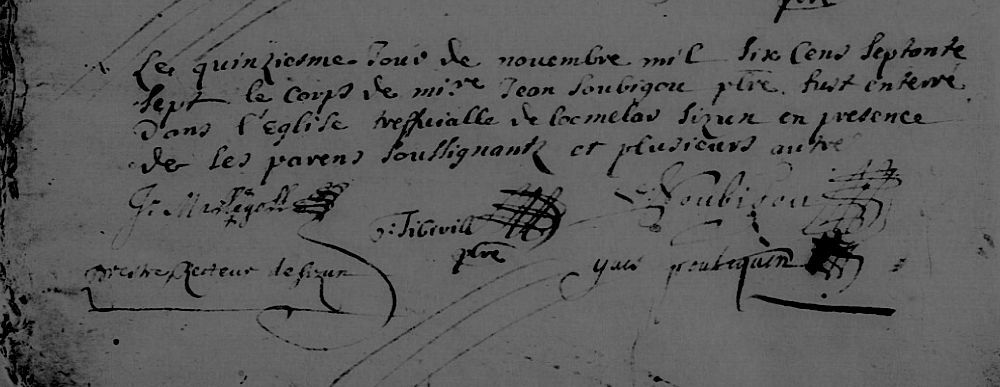 ptre
Le quinziesme Jour de novembre mil Six Cens Septante
Sept le corps de mire Jean Soubigou ptre fust enterré
Dans l'Eglise treffvialle de locmelar Sizun en presence
de Ses parens Soussignantz et plusieurs autre
Soubigou
ptre
yves
prestre Recteur de Sizun